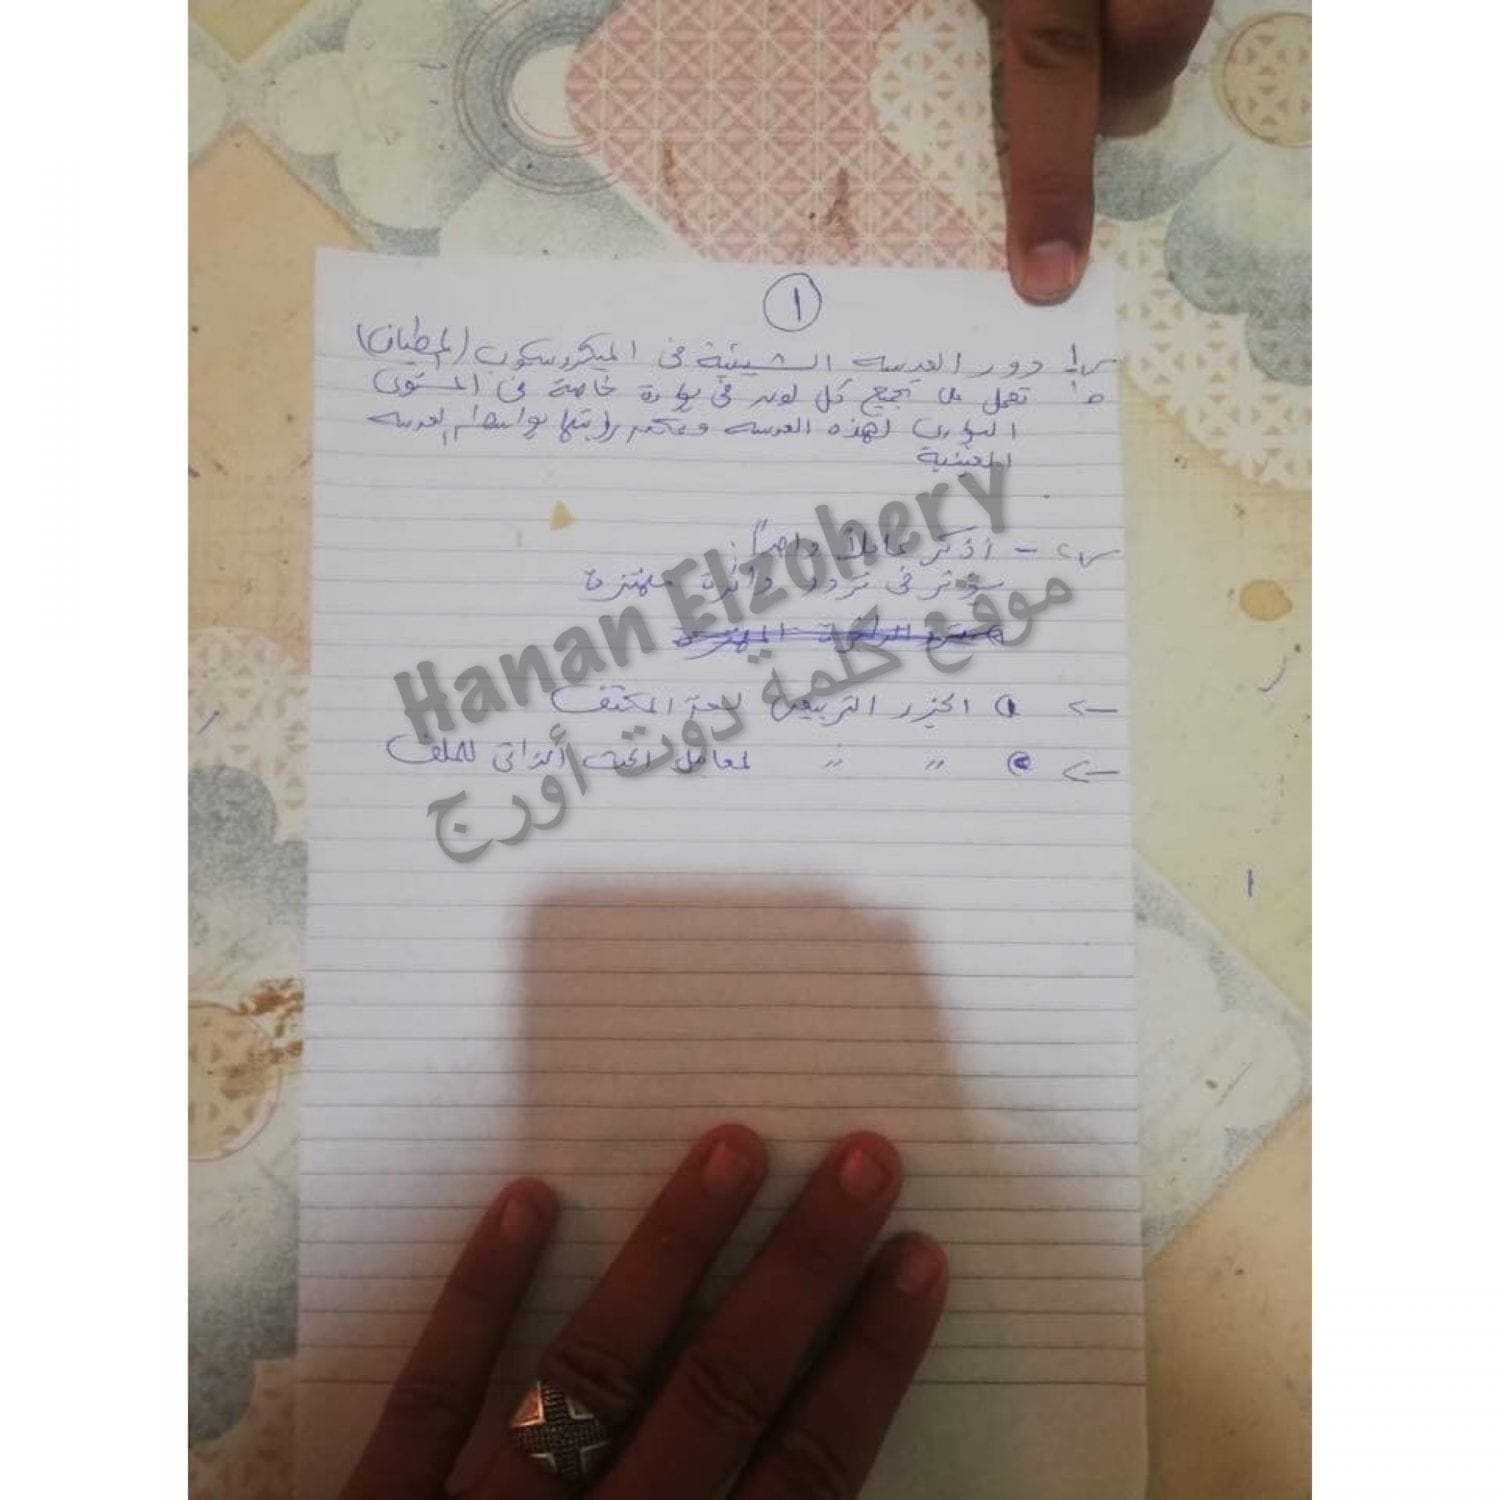 ١
س١ دور العدسه الشيئية فى الميكروسكوب (المطياف)
ج تعمل على تجميع كل لون فى بؤرة خاصة فى المستوى
البؤرى لهذه العدسه ويمكن رؤيتها بواسطه العدسه
العينية
س٢ - أذكر عاملاً واحداً:
يؤثر فى تردد دائرة مهتزة
← ١ الجذر التربيعى لسعة المكثف
← ٢ " " لمعامل الحث الذاتى للملف
Hanan Elzohery
موقع كلمة دوت أورج